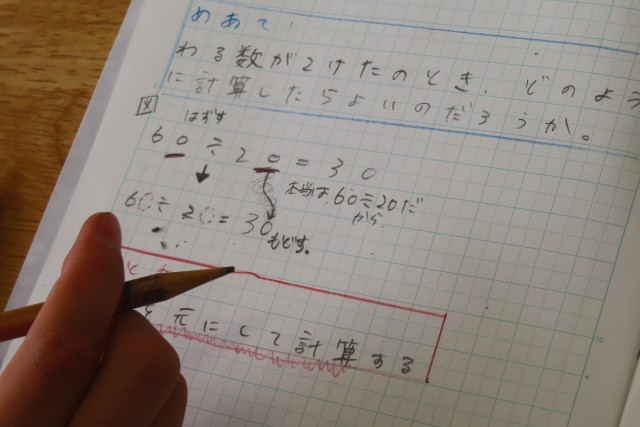 めあて
わる数が2けたのとき、どのよう
に計算したらよいのだろうか。
図 はずす
60÷20=30
本当は60÷20だ
から
60÷20=30
もどす。
元にして計算する